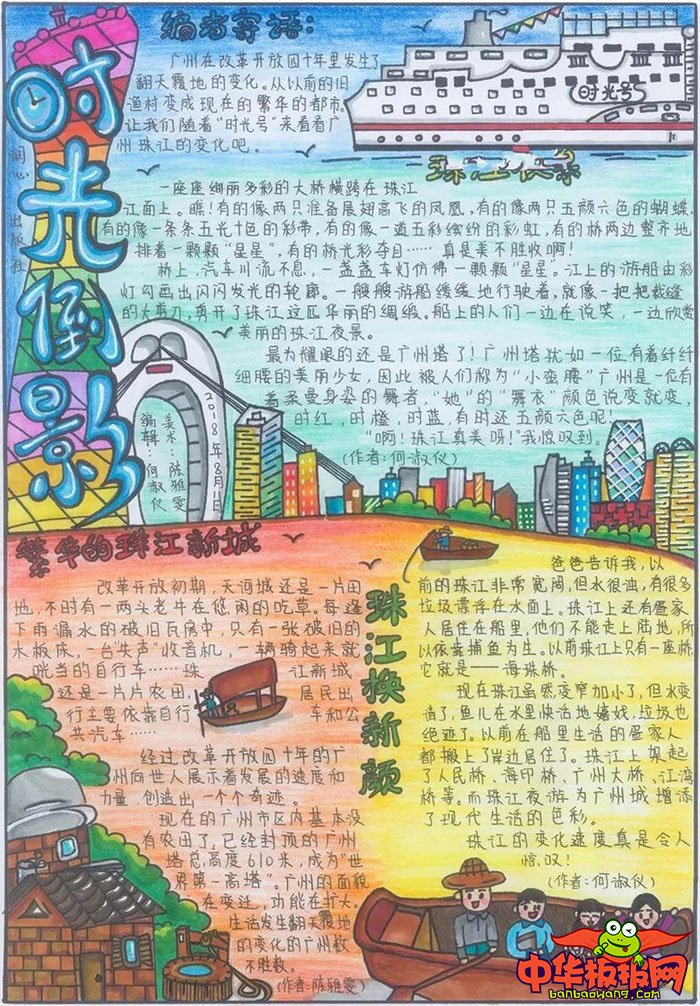 时光倒影
润心 出版社
编者寄语：
广州在改革开放四十年里发生了
翻天覆地的变化。从以前的旧
渔村变成现在的繁华的都市，
让我们随着“时光号”来看看广
州珠江的变化吧。
时光号
珠江快乐
一座座绚丽多彩的大桥横跨在珠江
江面上。瞧！有的像两只准备展翅高飞的凤凰，有的像两只五颜六色的蝴蝶
有的像一条条五光十色的彩带，有的像一道五彩缤纷的彩虹，有的桥两边整齐地
排着一颗颗“星星”，有的桥光彩夺目……真是美不胜收啊！
桥上，汽车川流不息，一盏盏车灯仿佛一颗颗“星星”。江上的游船由彩
灯勾画出闪闪发光的轮廓。一艘艘游船缓缓地行驶着，就像一把把裁缝
的大剪刀，剪开了珠江这匹华丽的绸缎。船上的人们一边在说笑，一边欣赏
美丽的珠江夜景。
最为耀眼的还是广州塔了！广州塔犹如一位有着纤纤
细腰的美丽少女，因此被人们称为“小蛮腰”广州是一位有
着柔曼身姿的舞者，“她”的“舞衣”颜色说变就变，
时红，时橙，时蓝，有时还五颜六色呢！
“啊！珠江真美呀！”我惊叹到。
（作者：何淑仪）
美术：陈雅雯
编辑：何淑仪
2018年8月1日
繁华的珠江新城
改革开放初期，天河城还是一片田
地，不时有一两头老牛在悠闲的吃草。每逢
下雨漏水的破旧瓦房中，只有一张破旧的
木板床，一台失声收音机，一辆骑起来就
咣当的自行车……珠江新城
还是一片片农田，居民出
行主要依靠自行车和公
共汽车……
经过改革开放四十年的广
州向世人展示着发展的速度和
力量，创造出一个个奇迹。
现在的广州市区内基本没
有农田了，已经封顶的广州
塔总高度610米，成为“世
界第一高塔”。广州的面貌
在变迁，功能在扩大。
生活发生翻天覆地
的变化的广州数
不胜数。
（作者：陈雅雯）
珠江换新颜
爸爸告诉我，以
前的珠江非常宽阔，但水很浊，有很多
垃圾漂浮在水面上。珠江上还有疍家
人居住在船里，他们不能走上陆地，所
以依靠捕鱼为生。以前珠江上只有一座桥
它就是——海珠桥。
现在珠江虽然变窄加小了，但水变
清了，鱼儿在水里快活地嬉戏，垃圾也
绝迹了。以前在船里生活的疍家人
都搬上了岸边居住了。珠江上架起
了人民桥、海印桥、广州大桥、江湾
桥等。而珠江夜游为广州城增添
了现代生活的色彩。
珠江的变化速度真是令人
惊叹！
（作者：何淑仪）
中华板报网
banbaowang.com